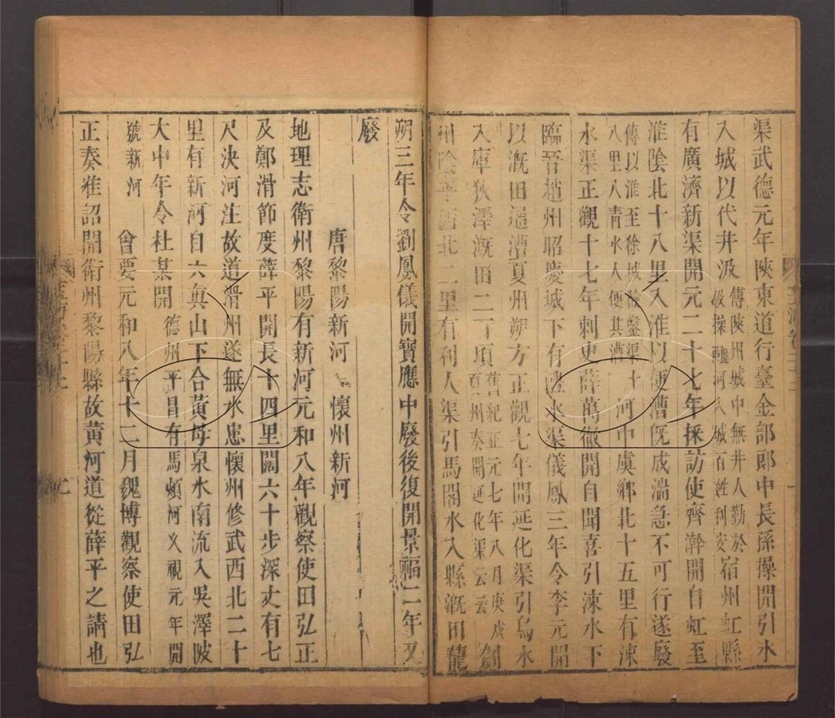 渠武德元年陝東道行臺金部郎中長孫操開引水
入城以代井汲傳陝州城中無井人勤於汲操釃河入城百姓利安宿州虹縣
有廣濟新渠開元二十七年採訪使齊澣開自虹至
淮陰北十八里入淮以便漕既成湍急不可行遂廢
傳以淮至徐城險鑿渠十八里入青水人便其漕河中虞鄉北十五里有涑
水渠正觀十七年刺史薛萬徹開自聞喜引涑水下
臨晉趙州昭慶城下有灃水渠儀鳳三年令李元開
以溉田通漕夏州朔方正觀七年開延化渠引烏水
入庫狄澤溉田二百頃舊紀正元七年八月庚戌夏州奏開延化渠云云
州陰 西北二里有利人渠引馬閣水入縣溉田龍
朔三年令劉鳳儀開寶應中廢後復開景福二年又
廢
唐黎陽新河 懷州新河
地理志衛州黎陽有新河元和八年觀察使田弘正
及鄭滑節度薛平開長十四里闊六十步深丈有七
尺決河注故道滑州遂無水患懷州修武西北二十
里有新河自六真山下合黃母泉水南流入吳澤陂
大中年令杜某開德州平昌有馬頰河久視元年開號新河
會要元和八年十二月魏博觀察使田弘
正奏准詔開衛州黎陽縣故黃河道從薛平之請也